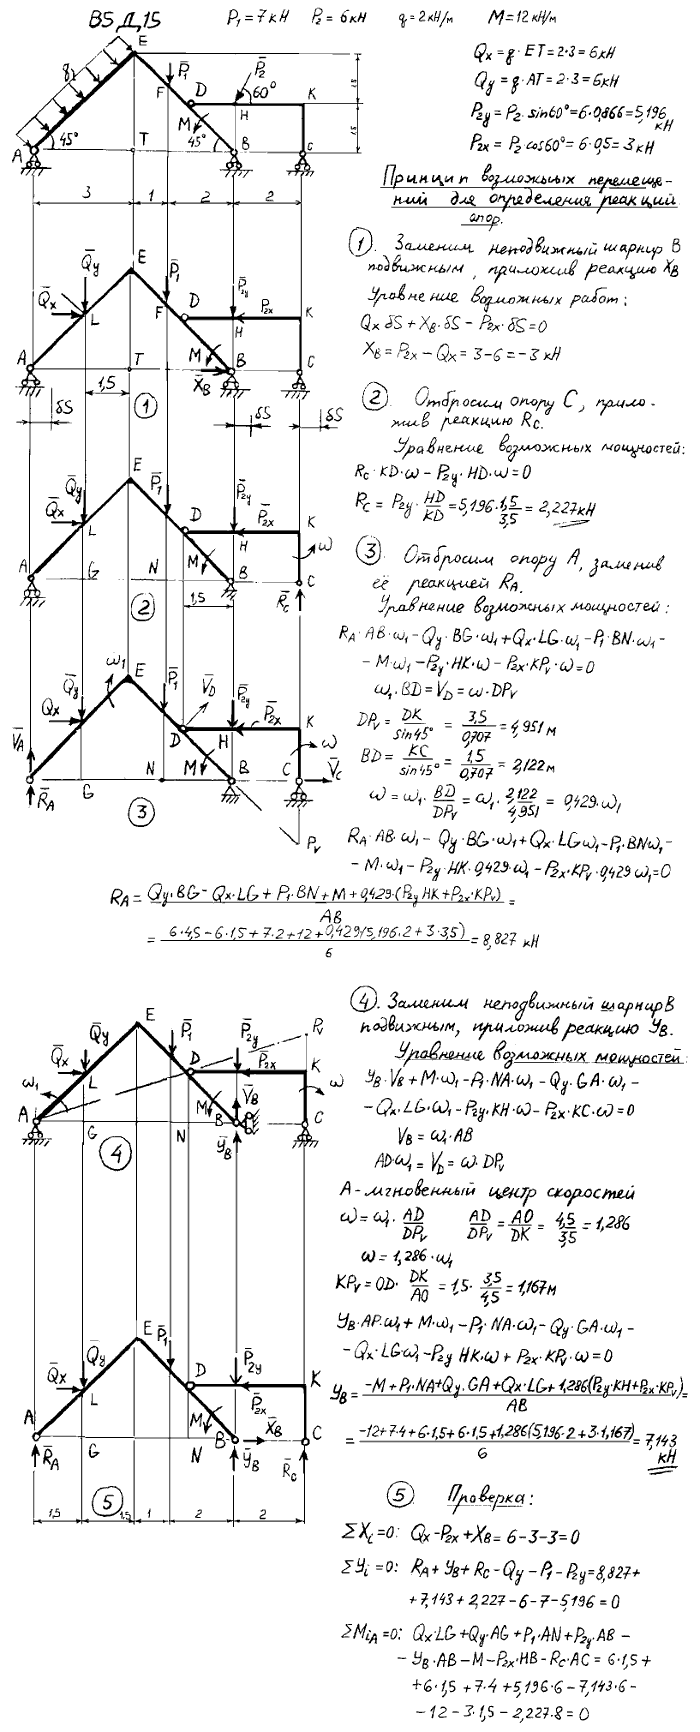 B5 Д15 P₁ = 7 кН P₂ = 6 кН q = 2 кН/м M = 12 кН/м
Qx = q · ET = 2·3 = 6 кН
Qy = q · AT = 2·3 = 6 кН
P2y = P₂ · sin60° = 6·0,866 = 5,196 кН
P2x = P₂ cos60° = 6·0,5 = 3 кН
E q P̄₁ F D P̄₂ 60° K H M 1,5
A 45° T 45° B C 1,5
3 1 2 2
Принцип возможных перемеще-
ний для определения реакций
опор.
1. Заменим неподвижный шарнир B
подвижным, приложив реакцию XB
Уравнение возможных работ:
Qx δS + XB·δS − P2x·δS = 0
XB = P2x − Qx = 3 − 6 = −3 кН
E Q̄y P̄₁ Q̄x L F D P̄2y P2x K H
A T M B X̄B C
1,5 1 δS δS δS
2. Отбросим опору C, прило-
жив реакцию RC.
Уравнение возможных мощностей:
RC · KD·ω − P2y·HD·ω = 0
RC = P2y · HD/KD = 5,196 · 1,5/3,5 = 2,227 кН
E Q̄y P̄₁ Q̄x L D P̄2y P̄2x K H ω
A G N M B C
2 1,5 R̄C
3. Отбросим опору A, заменив
её реакцией RA.
Уравнение возможных мощностей:
RA·AB·ω₁ − Qy·BG·ω₁ + Qx·LG·ω₁ − P₁·BN·ω₁ −
− M·ω₁ − P2y·HK·ω − P2x·KPv·ω = 0
ω₁·BD = VD = ω·DPv
DPv = DK/sin45° = 3,5/0,707 = 4,951 м
BD = KC/sin45° = 1,5/0,707 = 2,122 м
ω = ω₁ · BD/DPv = ω₁ · 2,122/4,951 = 0,429·ω₁
RA·AB·ω₁ − Qy·BG·ω₁ + Qx·LGω₁ − P₁·BNω₁ −
− M·ω₁ − P2y·HK·0,429·ω₁ − P2x·KPv·0,429 ω₁ = 0
ω₁ E Q̄y P̄₁ V̄D P̄2y P̄2x K
Q̄x V̄A D H M ω
R̄A G N B C V̄C
3 Pv
RA = (Qy·BG − Qx·LG + P₁·BN + M + 0,429·(P2y HK + P2x·KPv))/AB =
= (6·4,5 − 6·1,5 + 7·2 + 12 + 0,429(5,196·2 + 3·3,5))/6 = 8,827 кН
4. Заменим неподвижный шарнир B
подвижным, приложив реакцию YB.
Уравнение возможных мощностей:
YB·VB + M·ω₁ − P₁·NA·ω₁ − Qy·GA·ω₁ −
− Qx·LG·ω₁ − P2y·KH·ω − P2x·KC·ω = 0
VB = ω₁·AB
AD·ω₁ = VD = ω·DPv
A - мгновенный центр скоростей
ω = ω₁ · AD/DPv AD/DPv = AO/DK = 4,5/3,5 = 1,286
ω = 1,286·ω₁
KPv = OD · DK/AO = 1,5 · 3,5/4,5 = 1,167 м
YB·AP·ω₁ + M·ω₁ − P₁·NA·ω₁ − Qy·GA·ω₁ −
− Qx·LG·ω₁ − P2y HK·ω + P2x·KPv·ω = 0
YB = (−M + P₁·NA + Qy·GA + Qx·LG + 1,286(P2y·KH + P2x·KPv))/AB =
= (−12 + 7·4 + 6·1,5 + 6·1,5 + 1,286(5,196·2 + 3·1,167))/6 = 7,143 кН
E Q̄y P̄₁ P̄2y Pv
Q̄x L D P̄2x K ω₁ ω
A G N M V̄B B C
4 ȲB
E Q̄y P̄₁ P̄2y Q̄x L D P̄2x K H
A G N M B X̄B C
R̄A ȲB R̄C
5
1,5 1,5 1 2 2
5 Проверка:
ΣXi=0: Qx − P2x + XB = 6 − 3 − 3 = 0
ΣYi=0: RA + YB + RC − Qy − P₁ − P2y = 8,827 +
+ 7,143 + 2,227 − 6 − 7 − 5,196 = 0
ΣMiA=0: Qx·LG + Qy·AG + P₁·AN + P2y·AB −
− YB·AB − M − P2x·HB − RC·AC = 6·1,5 +
+ 6·1,5 + 7·4 + 5,196·6 − 7,143·6 −
− 12 − 3·1,5 − 2,227·8 = 0